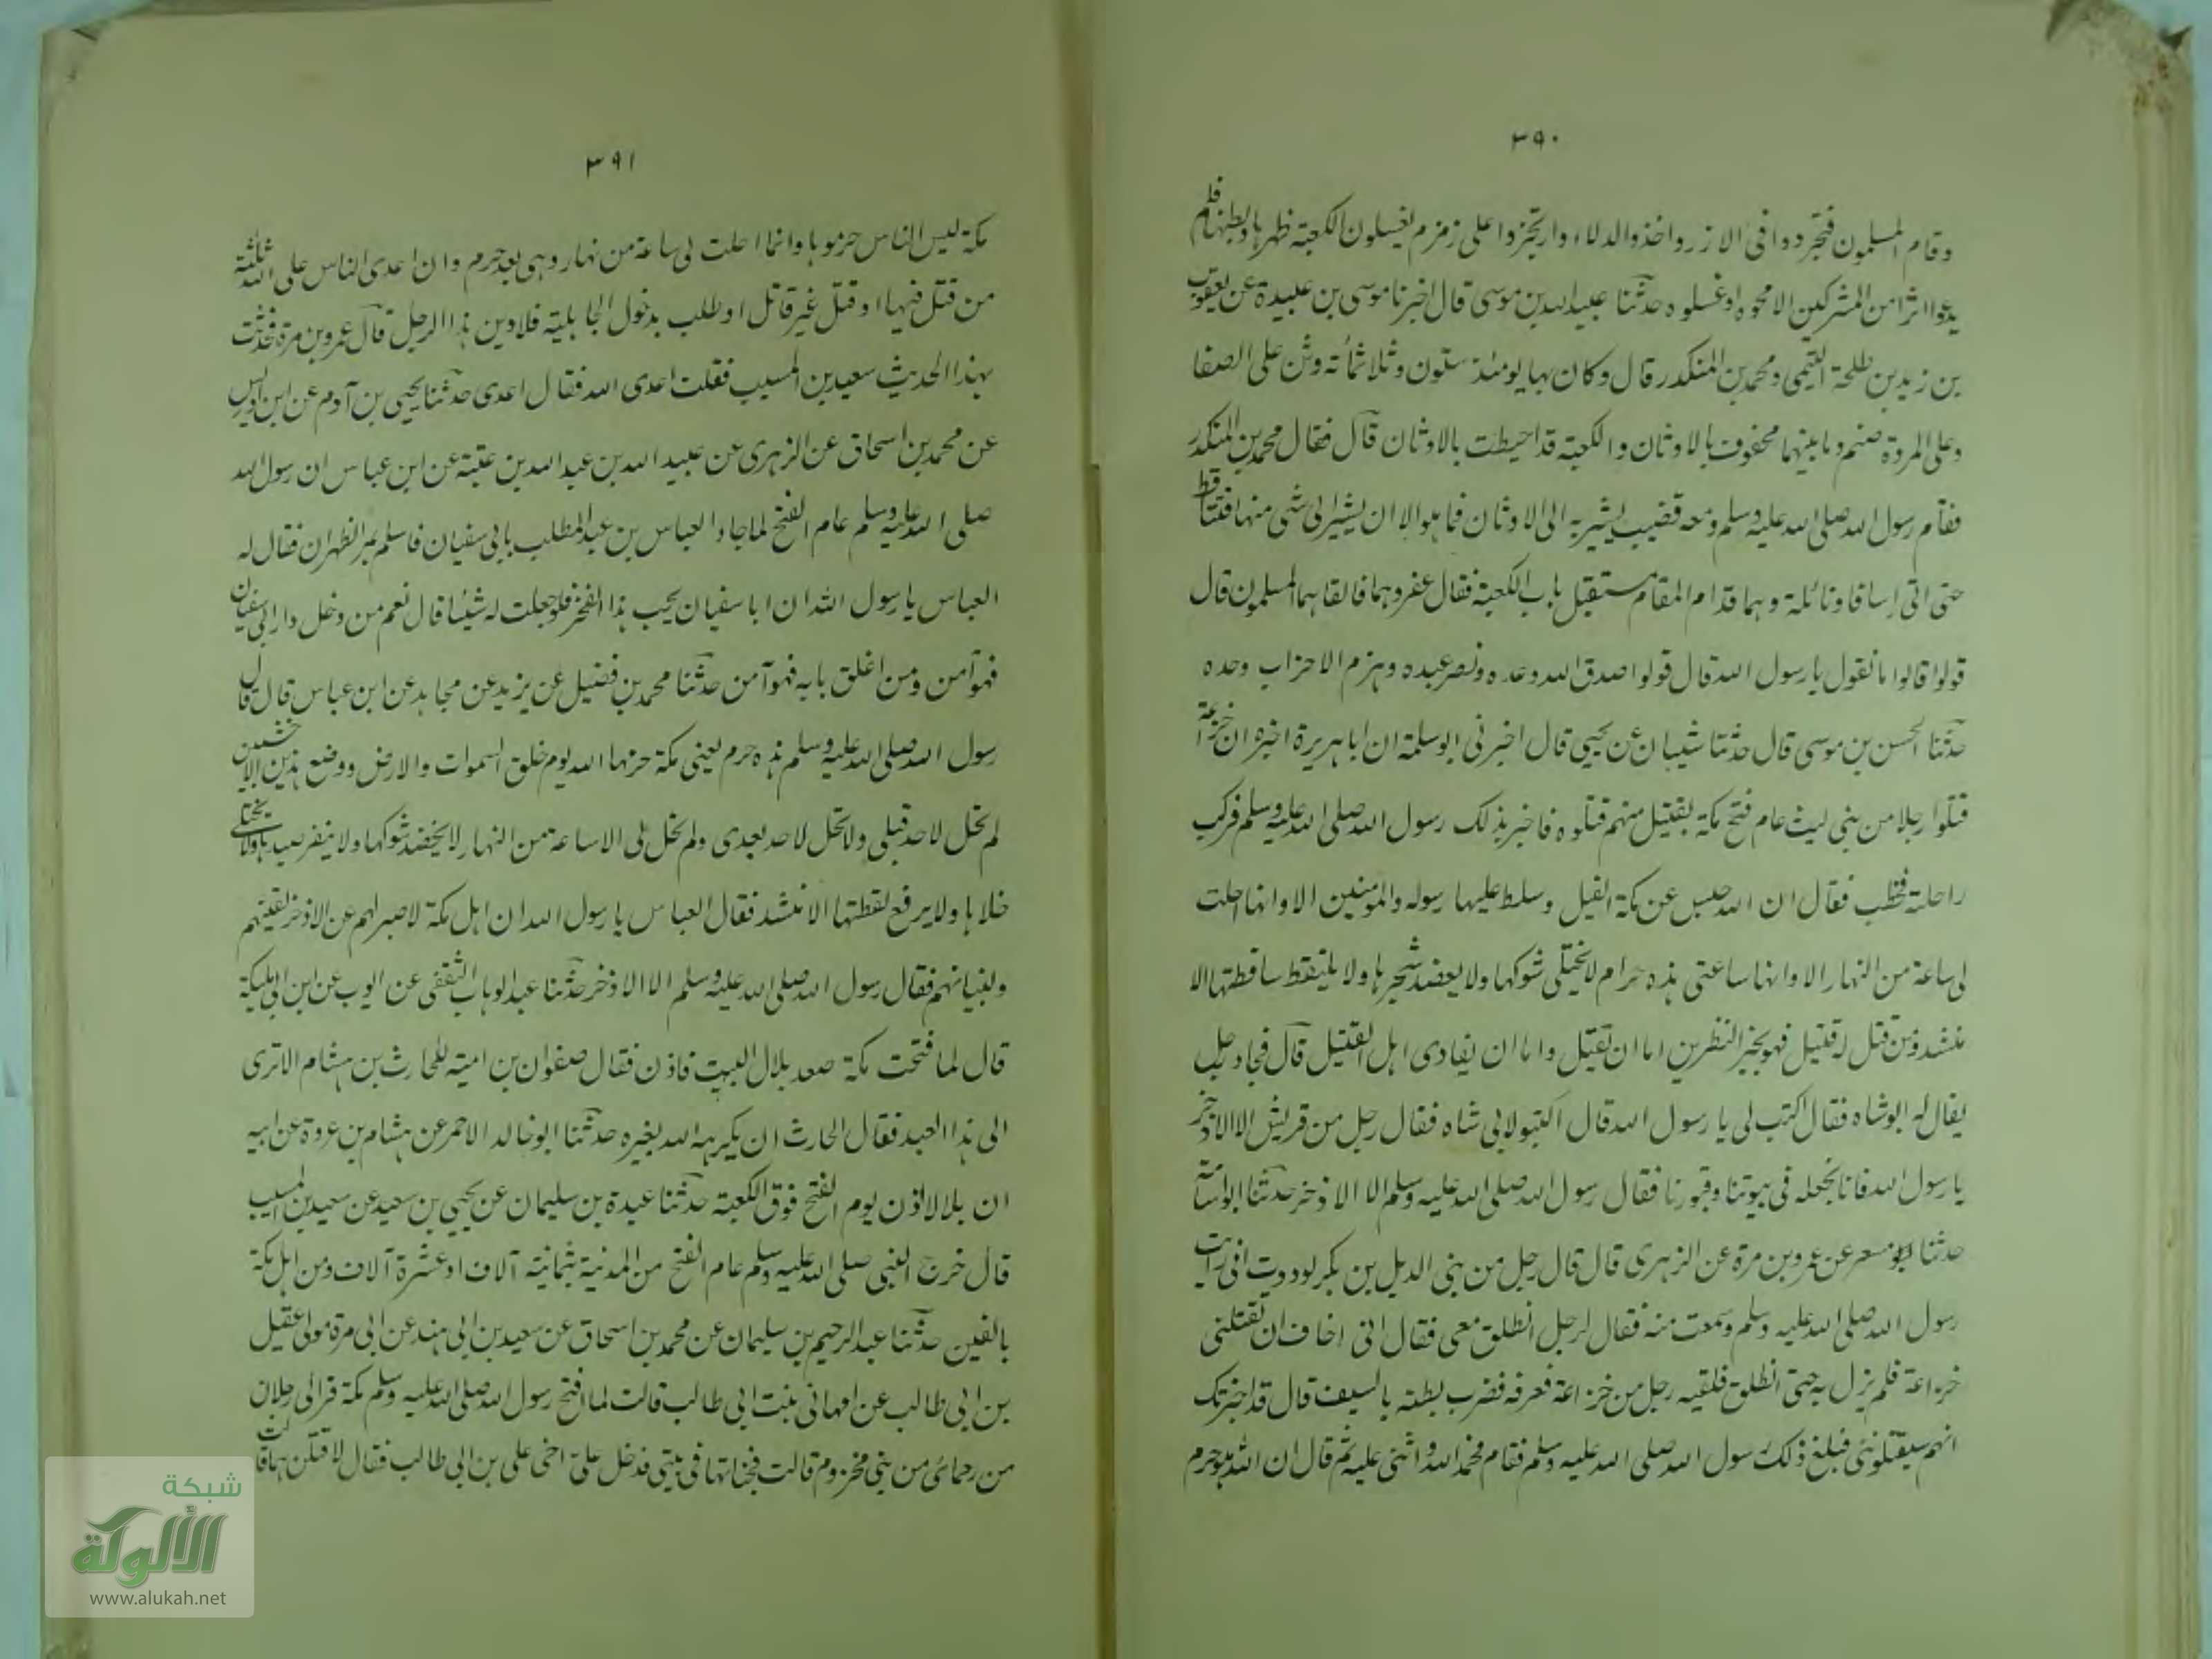 ٣٩٠
وقام المسلمون فتجردوا فى الازر واخذوا الدلاء وارتجزوا على زمزم يغسلون الكعبة ظهرها وبطنها فلم
يدعوا اثرا من المشركين الا محوه او غسلوه حدثنا عبيد الله بن موسى قال اخبرنا موسى بن عبيدة عن يعقوب
بن زيد بن طلحة التيمى ومحمد بن المنكدر قال وكان بها يومئذ ستون وثلاثمائة وثن على الصفا
وعلى المروة صنم وما بينهما محفوف بالاوثان والكعبة قد احيطت بالاوثان قال فقال محمد بن المنكدر
فقام رسول الله صلى الله عليه وسلم ومعه قضيب يشير به الى الاوثان فما هو الا ان يشير الى شى منها فتساقط
حتى اتى اسافا ونائلة وهما قدام المقام مستقبل باب الكعبة فقال عفروهما فالقاهما المسلمون قال
قولوا قالوا ما نقول يا رسول الله قال قولوا صدق الله وعده ونصر عبده وهزم الاحزاب وحده
حدثنا الحسن بن موسى قال حدثنا شيبان عن يحيى قال اخبرنى ابو سلمة ان ابا هريرة اخبره ان خزاعة
قتلوا رجلا من بنى ليث عام فتح مكة بقتيل منهم قتلوه فاخبر بذلك رسول الله صلى الله عليه وسلم فركب
راحلته فخطب فقال ان الله حبس عن مكة الفيل وسلط عليها رسوله والمومنين الا وانها احلت
لى ساعة من النهار الا وانها ساعتى هذه حرام لا يختلى شوكها ولا يعضد شجرها ولا يلتقط ساقطتها الا
منشد ومن قتل له قتيل فهو بخير النظرين اما ان يقتل واما ان يفادى اهل القتيل قال فجاء رجل
يقال له ابو شاه فقال اكتب لى يا رسول الله قال اكتبو لابى شاه فقال رجل من قريش الا الاذخر
يا رسول الله فانا نجعله فى بيوتنا وقبورنا فقال رسول الله صلى الله عليه وسلم الا الاذخر حدثنا ابو اسامة
حدثنا مسعر عن عمرو بن مرة عن الزهرى قال قال رجل من بنى الديل بن بكر لوددت انى رايت
رسول الله صلى الله عليه وسلم وسمعت منه فقال لرجل انطلق معى فقال انى اخاف ان تقتلنى
خزاعة فلم يزل به حتى انطلق فلقيه رجل من خزاعة فعرفه فضرب بطنه بالسيف قال قد اخبرتك
انهم سيقتلوننى فبلغ ذلك رسول الله صلى الله عليه وسلم فقام فحمد الله واثنى عليه ثم قال ان الله هو حرم
٣٩١
مكة ليس الناس حرموها وانما احلت لى ساعة من نهار وهى بعد حرم وان اعدى الناس على الله ثلثة
من قتل فيها او قتل غير قاتل او طلب بدخول الجاهلية فلادين هذا الرجل قال عمرو بن مرة فحدثت
بهذا الحديث سعيد بن المسيب فقلت اعدى الله فقال اعدى حدثنا يحيى بن آدم عن ابن ادريس
عن محمد بن اسحاق عن الزهرى عن عبيد الله بن عبد الله بن عتبة عن ابن عباس ان رسول الله
صلى الله عليه وسلم عام الفتح لما جاء العباس بن عبد المطلب بابى سفيان فاسلم بمر الظهران فقال له
العباس يا رسول الله ان ابا سفيان يحب هذا الفخر فلو جعلت له شيئا قال نعم من دخل دار ابى سفيان
فهو آمن ومن اغلق بابه فهو آمن حدثنا محمد بن فضيل عن يزيد عن مجاهد عن ابن عباس قال قال
رسول الله صلى الله عليه وسلم هذه حرم يعنى مكة حرمها الله يوم خلق السموات والارض ووضع هذين الاخشبين
لم تحل لاحد قبلى ولا تحل لاحد بعدى ولم تحل لى الا ساعة من النهار لا يخضد شوكها ولا ينفر صيدها ولا يختلى
خلاها ولا يرفع لقطتها الا منشد فقال العباس يا رسول الله ان اهل مكة لا صبر لهم عن الاذخر لقينهم
ولبنيانهم فقال رسول الله صلى الله عليه وسلم الا الاذخر حدثنا عبد الوهاب الثقفى عن ايوب عن ابن ابى مليكة
قال لما فتحت مكة صعد بلال البيت فاذن فقال صفوان بن امية للحارث بن هشام الا ترى
الى هذا العبد فقال الحارث ان يكرهه الله يغيره حدثنا ابو خالد الاحمر عن هشام بن عروة عن ابيه
ان بلالا اذن يوم الفتح فوق الكعبة حدثنا عبدة بن سليمان عن يحيى بن سعيد عن سعيد بن المسيب
قال خرج النبى صلى الله عليه وسلم عام الفتح من المدنية بثمانية آلاف او عشرة آلاف ومن اهل مكة
بالفين حدثنا عبد الرحيم بن سليمان عن محمد بن اسحاق عن سعيد بن ابى هند عن ابى مرة مولى عقيل
بن ابى طالب عن ام هانى بنت ابى طالب قالت لما افتح رسول الله صلى الله عليه وسلم مكة فر الى رجلان
من رحمائى من بنى مخزوم قالت فخباتهما فى بيتى فدخل على اخى على بن ابى طالب فقال لاقتلنهما قالت
شبكة
الألوكة
www.alukah.net